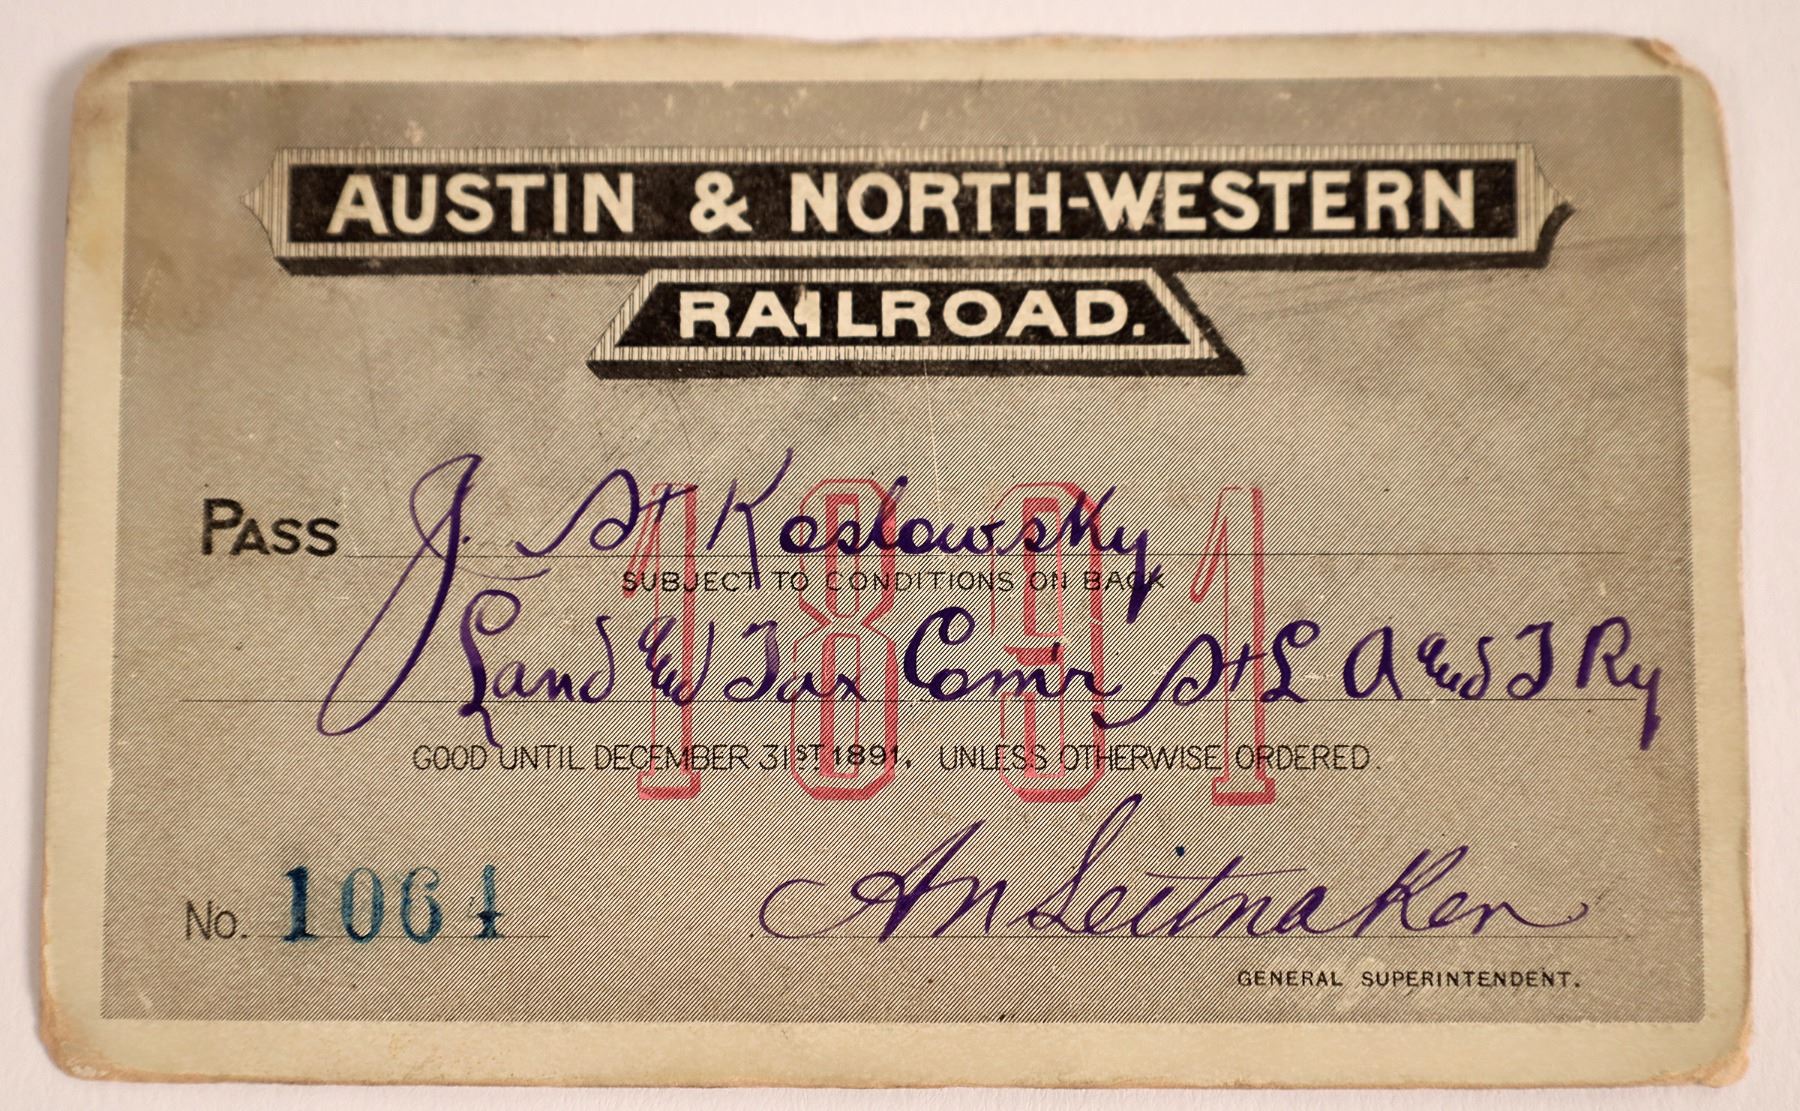 AUSTIN & NORTH-WESTERN
RAILROAD.
PASS J. St Koslowsky
SUBJECT TO CONDITIONS ON BACK
Land and Tax Comr St L A and T Ry
1891
GOOD UNTIL DECEMBER 31ST 1891, UNLESS OTHERWISE ORDERED.
No. 1064 AN Leitnaker
GENERAL SUPERINTENDENT.